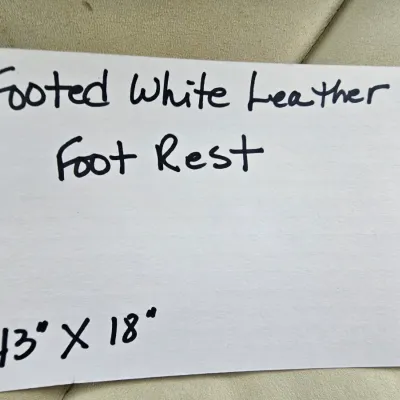 Footed White Leather
Foot Rest
13" X 18"